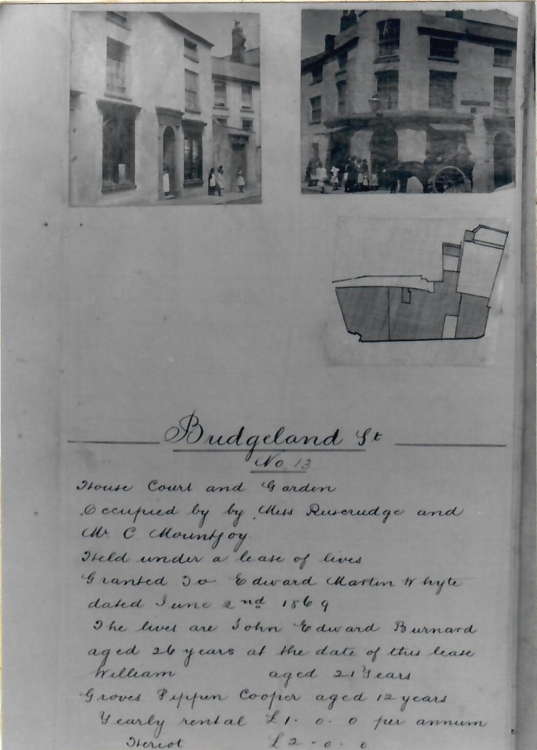 Bridgeland St
No 13
House Court and Garden
Occupied by by Miss and
Mr C Mountjoy
Held under a lease of lives
Granted To Edward Marten Whyte
dated June 2nd 1869
The lives are John Edward Burnard
aged 26 years at the date of this lease
William aged 21 Years
Groves Peppin Cooper aged 12 years
Yearly rental £1 . 0 . 0 per annum
Heriot £2 . 0 . 0